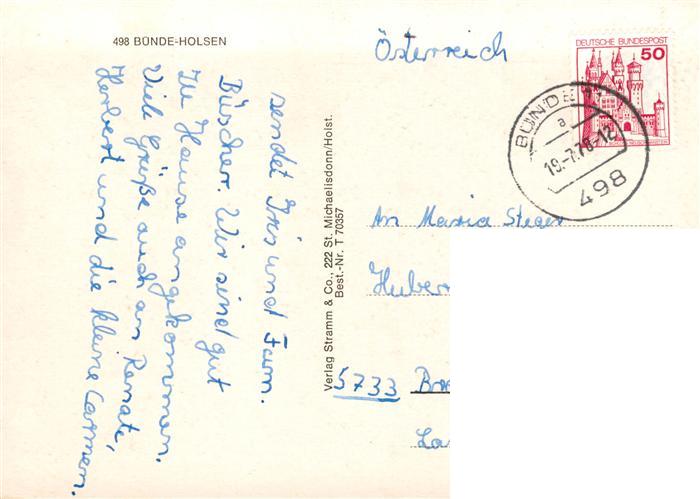 498 BÜNDE-HOLSEN
sendet Iris und Fam.
Büscher. Wir sind gut
zu Hause angekommen.
Viele Grüße auch an Renate,
Herbert und die kleine Carmen.
Verlag Stramm & Co., 222 St. Michaelisdonn/Holst.
Best.-Nr. T 70357
Österreich
DEUTSCHE BUNDESPOST
50
BÜNDE
a
19.-7.78-12
498
An Maria Steger
Huber
5733